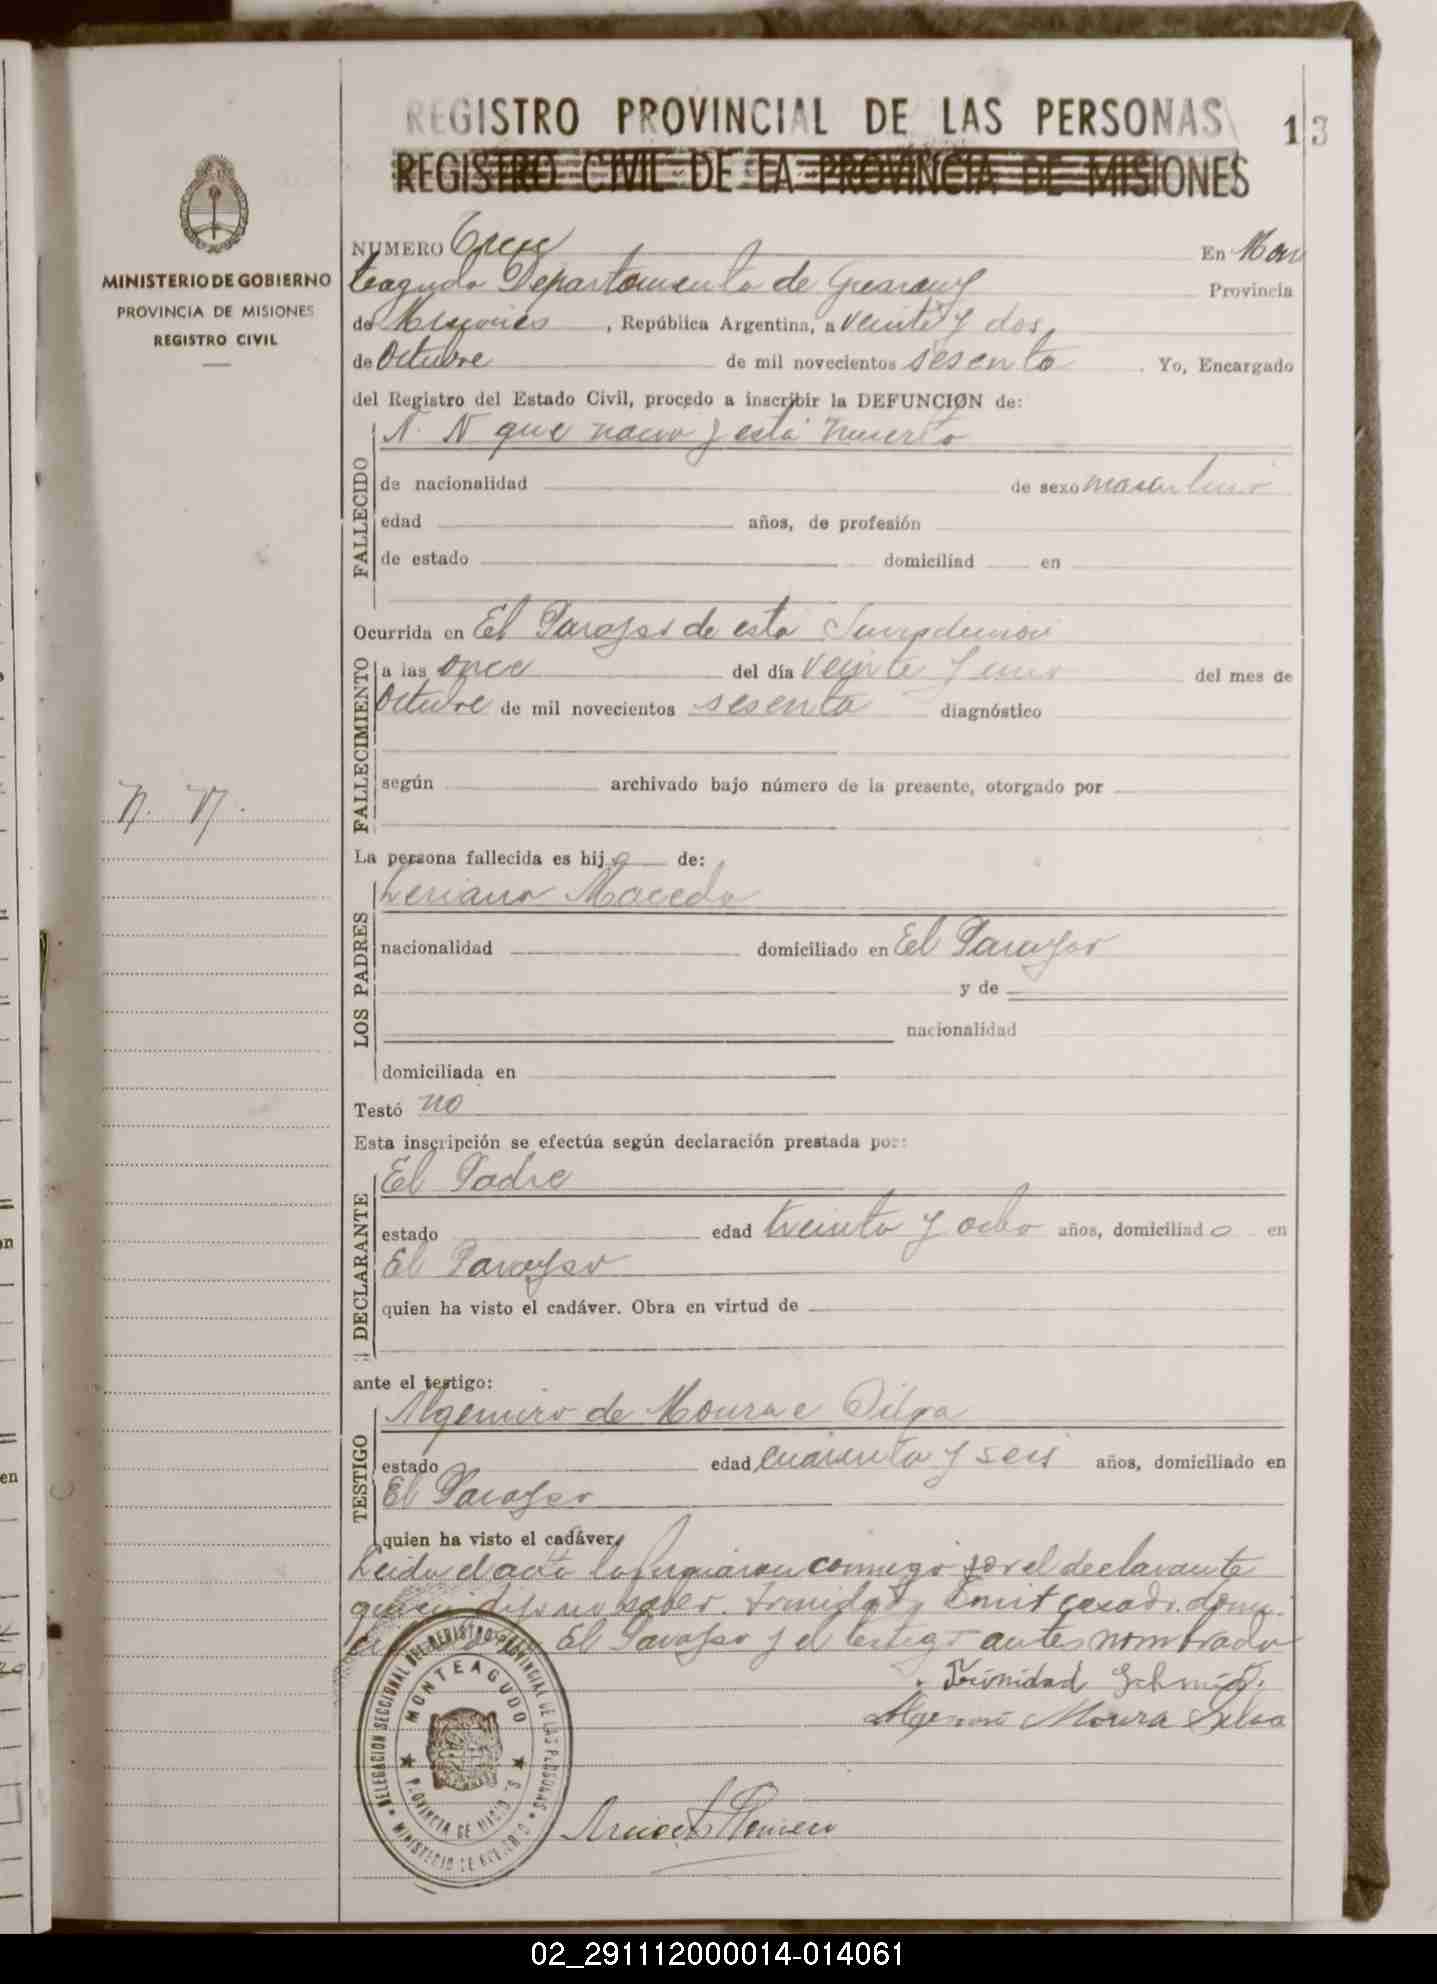 REGISTRO PROVINCIAL DE LAS PERSONAS
13
REGISTRO CIVIL DE LA PROVINCIA DE MISIONES
MINISTERIO DE GOBIERNO
PROVINCIA DE MISIONES
REGISTRO CIVIL
NUMERO En Mon
teagudo Departamento de Guarany Provincia
de Misiones, República Argentina, a veinte y dos
de Octubre de mil novecientos sesenta. Yo, Encargado
del Registro del Estado Civil, procedo a inscribir la DEFUNCIÓN de:
N. N que nacio y está muerto
FALLECIDO
de nacionalidad de sexo masculino
edad años, de profesión
de estado domiciliad en
Ocurrida en El Parayso de esta Jurisdicion
FALLECIMIENTO
a las once del día veinte y uno del mes de
Octubre de mil novecientos sesenta diagnóstico
según archivado bajo número de la presente, otorgado por
N. N.
La persona fallecida es hijo de:
LOS PADRES
Macedo
nacionalidad domiciliado en El Parayso
y de
nacionalidad
domiciliada en
Testó no
Esta inscripción se efectúa según declaración prestada por:
DECLARANTE
El Padre
estado edad treinta y ocho años, domiciliado en
El Parayso
quien ha visto el cadáver. Obra en virtud de
ante el testigo:
TESTIGO
Algemiro de Moura e Silva
estado edad cuarenta y seis años, domiciliado en
El Parayso
quien ha visto el cadáver.
Leida el acta la firmaron conmigo por el declarante
quien dijo no saber. casado. domi
El Parayso y el testigo antes nombrado
Trinidad
Moura Silva
DELEGACION SECCIONAL DEL REGISTRO PROVINCIAL DE LAS PERSONAS
MONTEAGUDO
PROVINCIA DE MISIONES
MINISTERIO DE GOBIERNO
02_291112000014-014061